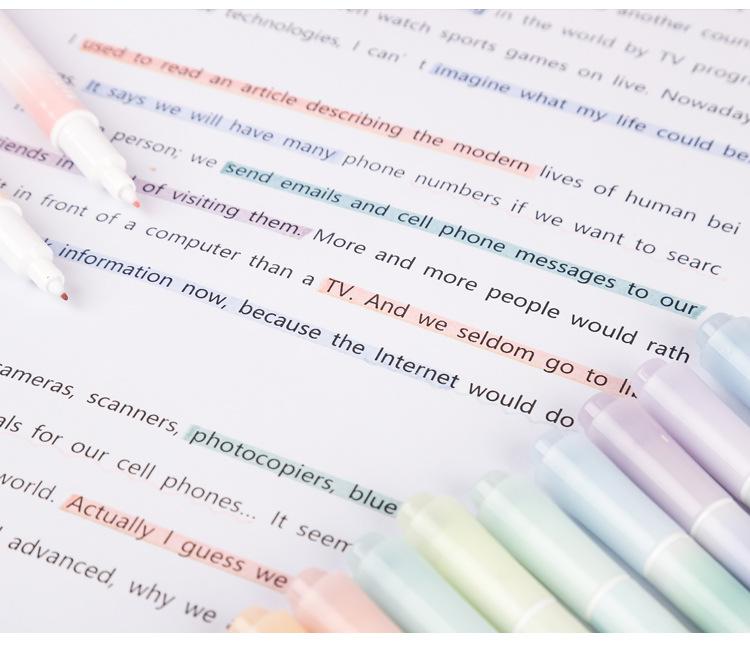 in the world by TV progr
technologies, I can't imagine what my life could be
watch sports games on live. Nowaday
I used to read an article describing the modern lives of human bei
It says we will have many phone numbers if we want to searc
person; we send emails and cell phone messages to our
friends in of visiting them. More and more people would rath
in front of a computer than a TV. And we seldom go to li
information now, because the Internet would do
cameras, scanners, photocopiers, blue
for our cell phones... It seem
world. Actually I guess we
advanced, why we